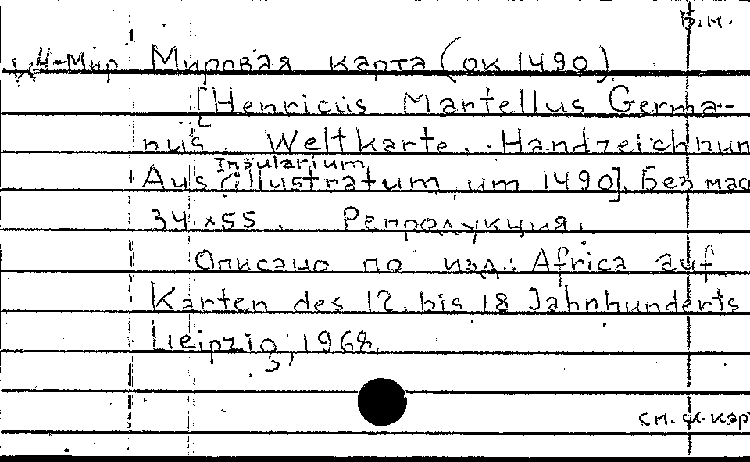 Б.м.
4-Мир Мировая карта (ок 1490)
[Henricus Martellus Germa-
nus. Weltkarte. Handzeichnun
Insularium
Aus: illustratum um 1490]. Без мас
34 x 55. Репродукция.
Описано по изд.: Africa auf
Karten des 12. bis 18 Jahrhunderts
Leipzig, 1968
см. ск. кар